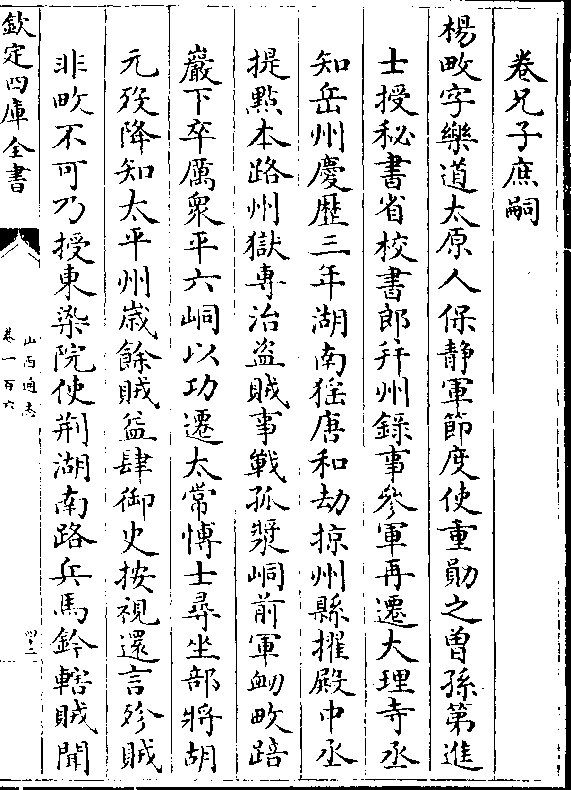 卷兄子庶嗣
楊畋字樂道太原人保靜軍節度使重勛之曾孫第進
士授秘書省校書郎幷州錄事參軍再遷大理寺丞
知岳州慶歷三年湖南猺唐和劫掠州縣擢殿中丞
提點本路州獄專治盗賊事戰孤漿峒前軍衂畋踣
巖下卒厲衆平六峒以功遷太常愽士尋坐部將胡
元歿降知太平州嵗餘賊益肆御史按視還言殄賊
非畋不可乃授東染院使荆湖南路兵馬鈐轄賊聞
欽定四庫全書
山西通志
卷一百六